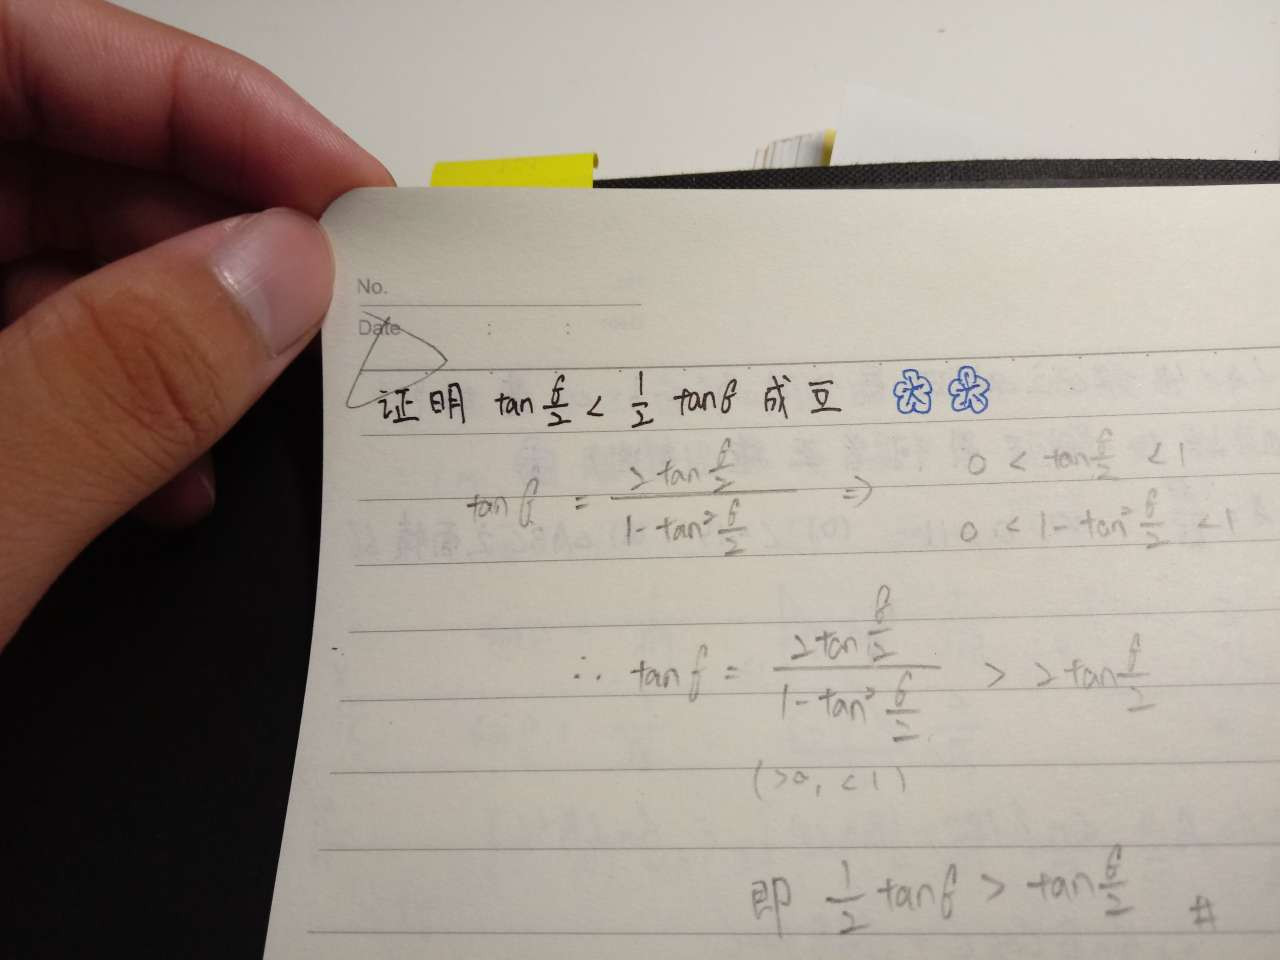 No.
Date : :
证明 tan θ/2 < 1/2 tanθ 成立
tanθ = 2tan θ/2 / 1-tan² θ/2 ⇒ 0 < tan θ/2 < 1
0 < 1-tan² θ/2 < 1
∴ tanθ = 2tan θ/2 / 1-tan² θ/2 > 2tan θ/2
(>0, <1)
即 1/2 tanθ > tan θ/2 #